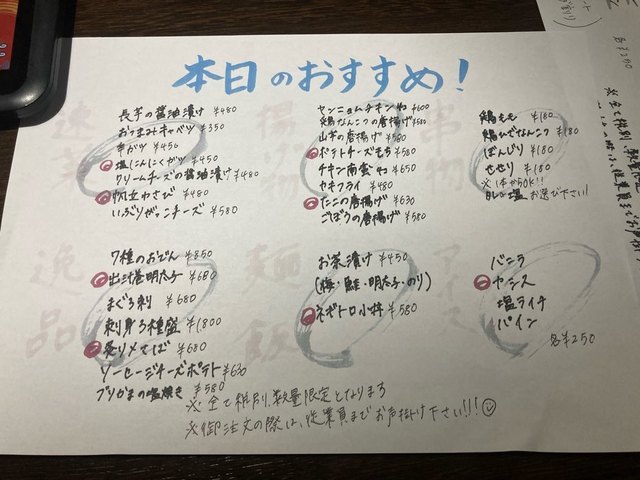 本日のおすすめ!
長芋の醤油漬け ¥480
おつまみキャベツ ¥350
串がツ ¥450
塩にんにくガツ ¥450
クリームチーズの醤油漬け ¥480
帆立わさび ¥480
いぶりがっこチーズ ¥580
ヤンニョムチキン ¥600
鶏なんこつの唐揚げ ¥580
山芋の唐揚げ ¥580
ポテトチーズもち ¥580
チキン南蛮 ¥650
カキフライ ¥480
たこの唐揚げ ¥630
ごぼうの唐揚げ ¥580
鶏もも ¥180
鶏ひざなんこつ ¥180
ぼんじり ¥180
せせり ¥180
※1本からOK!!
タレor塩 お選び下さい!
7種のおでん ¥850
出汁巻明太子 ¥680
まぐろ刺 ¥680
刺身3種盛 ¥1,800
炙り〆さば ¥680
ソーセージチーズポテト ¥630
ブリかまの塩焼き ¥580
お茶漬け ¥450
(梅・鮭・明太子・のり)
ネギトロ小丼 ¥580
バニラ
カシス
塩ライチ
パイン
各¥250
※全て税別、数量限定となります
※御注文の際は、従業員までお声掛け下さい!!!
逸品
麺飯
アイス
揚物
串
各¥250